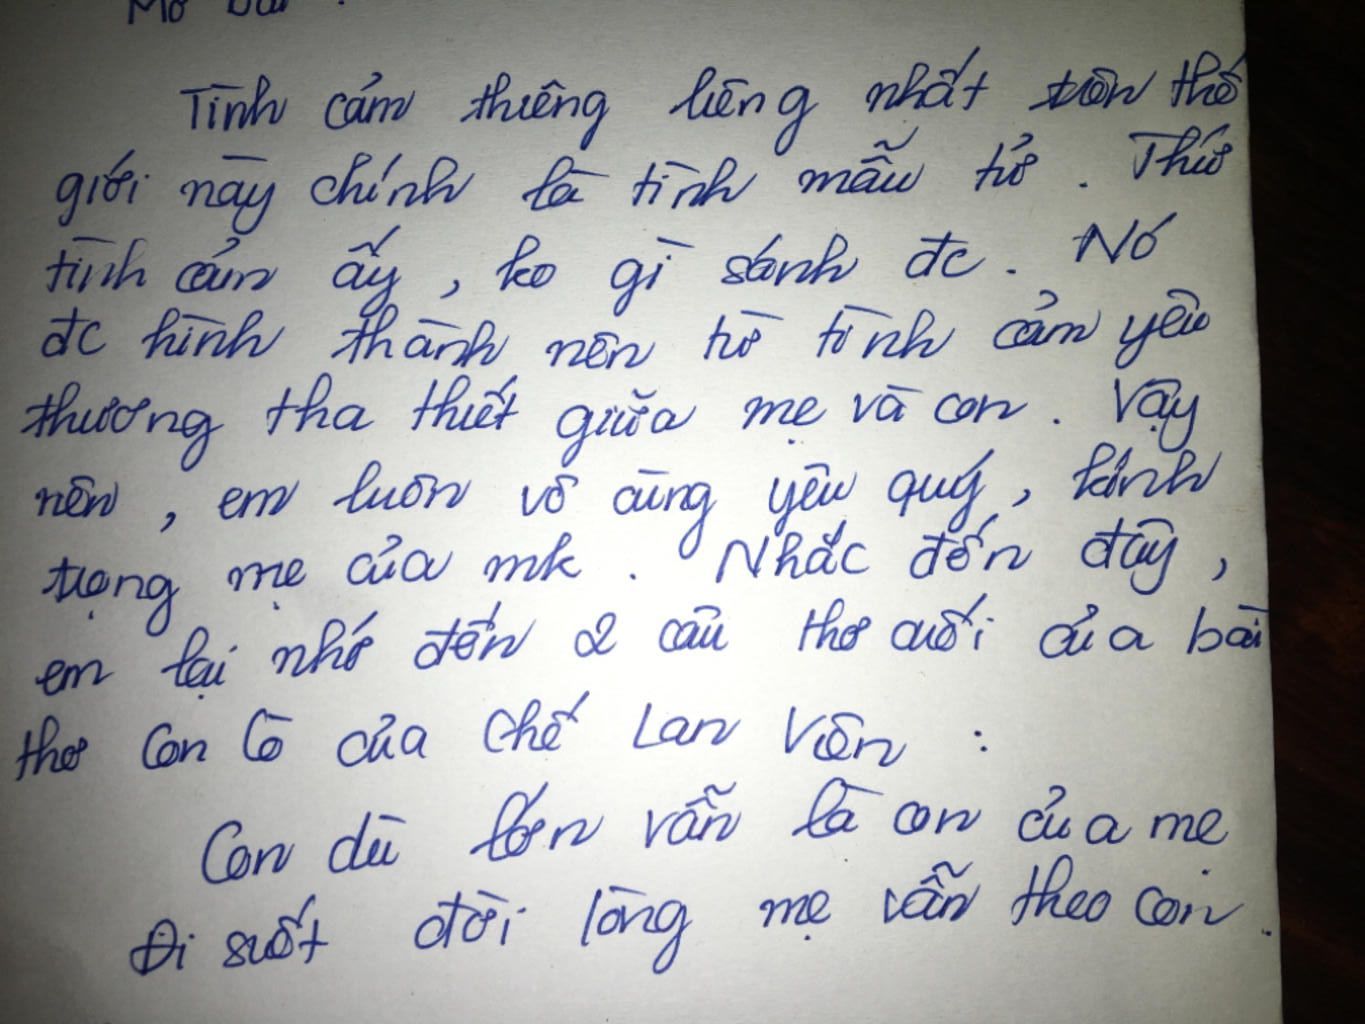 Mở bài :
Tình cảm thiêng liêng nhất trên thế
giới này chính là tình mẫu tử . Thứ
tình cảm ấy , ko gì sánh đc . Nó
đc hình thành nên từ tình cảm yêu
thương tha thiết giữa mẹ và con . Vậy
nên , em luôn vô cùng yêu quý , kính
trọng mẹ của mk . Nhắc đến đây ,
em lại nhớ đến 2 câu thơ cuối của bài
thơ Con Cò của Chế Lan Viên :
Con dù lớn vẫn là con của mẹ
Đi suốt đời lòng mẹ vẫn theo con .